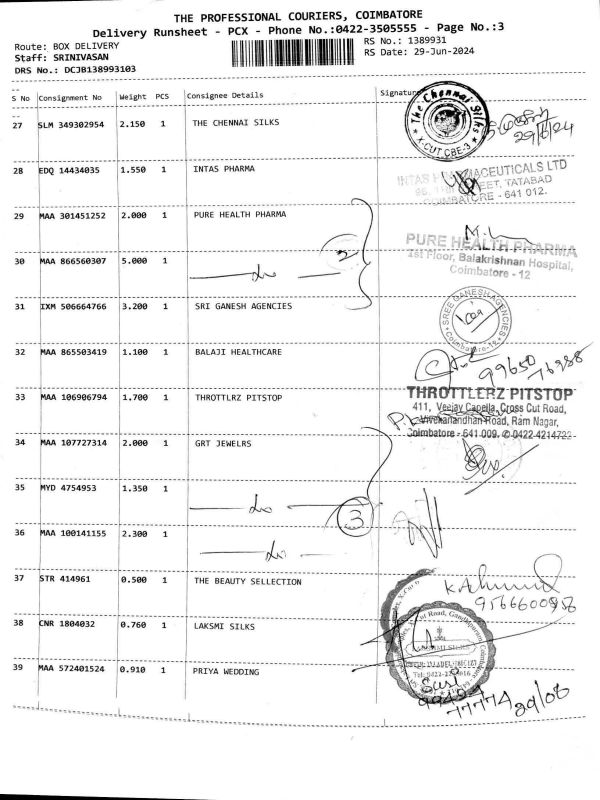 THE PROFESSIONAL COURIERS, COIMBATORE
Delivery Runsheet - PCX - Phone No.:0422-3505555 - Page No.:3
Route: BOX DELIVERY
RS No.: 1389931
Staff: SRINIVASAN
RS Date: 29-Jun-2024
DRS No.: DCJB138993103
S No Consignment No Weight PCS Consignee Details Signature
27 SLM 349302954 2.150 1 THE CHENNAI SILKS
The Chennai Silks
X-CUT.CBE-3
29/6/24
28 EDQ 14434035 1.550 1 INTAS PHARMA
INTAS PHARMACEUTICALS LTD
STREET, TATABAD
COIMBATORE - 641 012.
29 MAA 301451252 2.000 1 PURE HEALTH PHARMA
PURE HEALTH PHARMA
1st Floor, Balakrishnan Hospital,
Coimbatore - 12
30 MAA 866560307 5.000 1
2
31 IXM 506664766 3.200 1 SRI GANESH AGENCIES
SREE GANESH AGENCIES
Coimbatore-12
32 MAA 865503419 1.100 1 BALAJI HEALTHCARE
99650
76988
33 MAA 106906794 1.700 1 THROTTLRZ PITSTOP
THROTTLERZ PITSTOP
411, Veejay Capella, Cross Cut Road,
Vivekanandhan Road, Ram Nagar,
Coimbatore - 641 009. ✆ 0422-4214722
34 MAA 107727314 2.000 1 GRT JEWELRS
35 MYD 4754953 1.350 1
3
36 MAA 100141155 2.300 1
37 STR 414961 0.500 1 THE BEAUTY SELLECTION
9566600956
38 CNR 1804032 0.760 1 LAKSMI SILKS
LAKSHMI SILKS
39 MAA 572401524 0.910 1 PRIYA WEDDING
Suri
77774
29/06